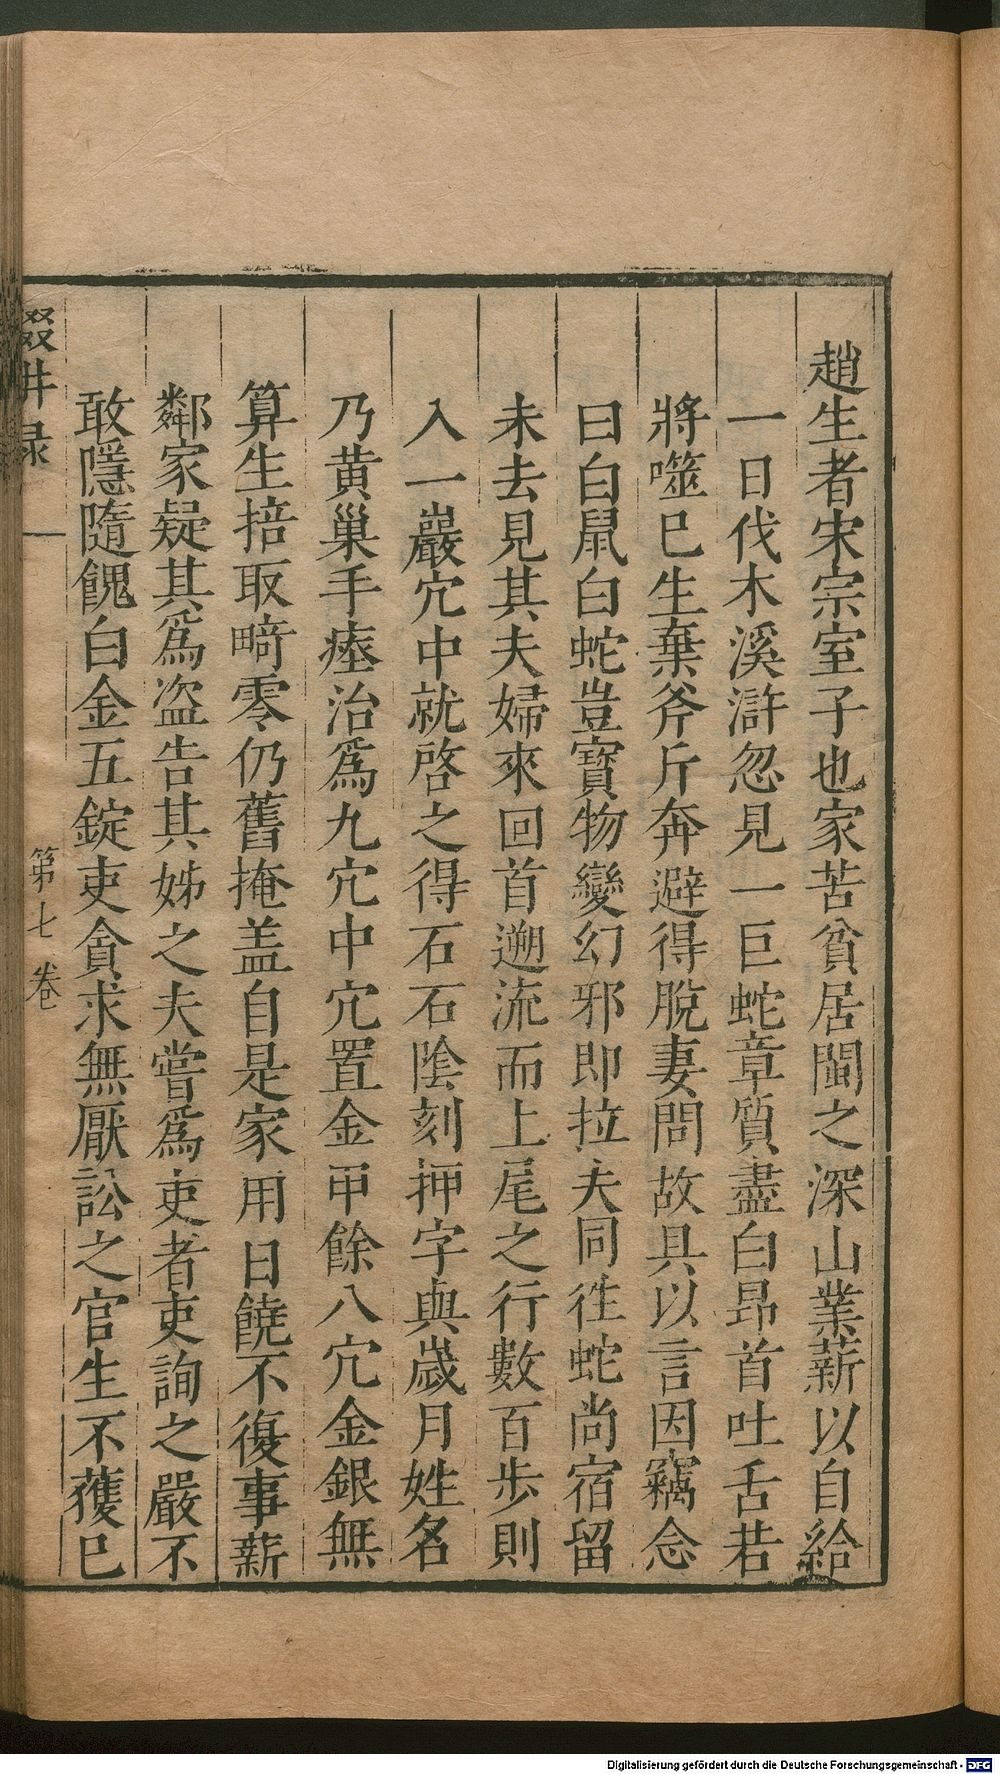 趙生者宋宗室子也家苦貧居閩之深山業薪以自給
一日伐木溪滸忽見一巨蛇章質盡白昂首吐舌若
將噬巳生棄斧斤奔避得脫妻問故具以言因竊念
曰白鼠白蛇豈寶物變幻邪即拉夫同徃蛇尚宿留
未去見其夫婦來回首遡流而上尾之行數百歩則
入一巖穴中就啓之得石石陰刻押字與歲月姓名
乃黄巢手瘞治爲九穴中穴置金甲餘八穴金銀無
算生掊取畸零仍舊掩盖自是家用日饒不復事薪
鄰家疑其爲盗告其姊之夫嘗爲吏者吏詢之嚴不
敢隱隨餽白金五錠吏貪求無厭訟之官生不獲巳
輟畊录
第七卷
Digitalisierung gefördert durch die Deutsche Forschungsgemeinschaft - DFG